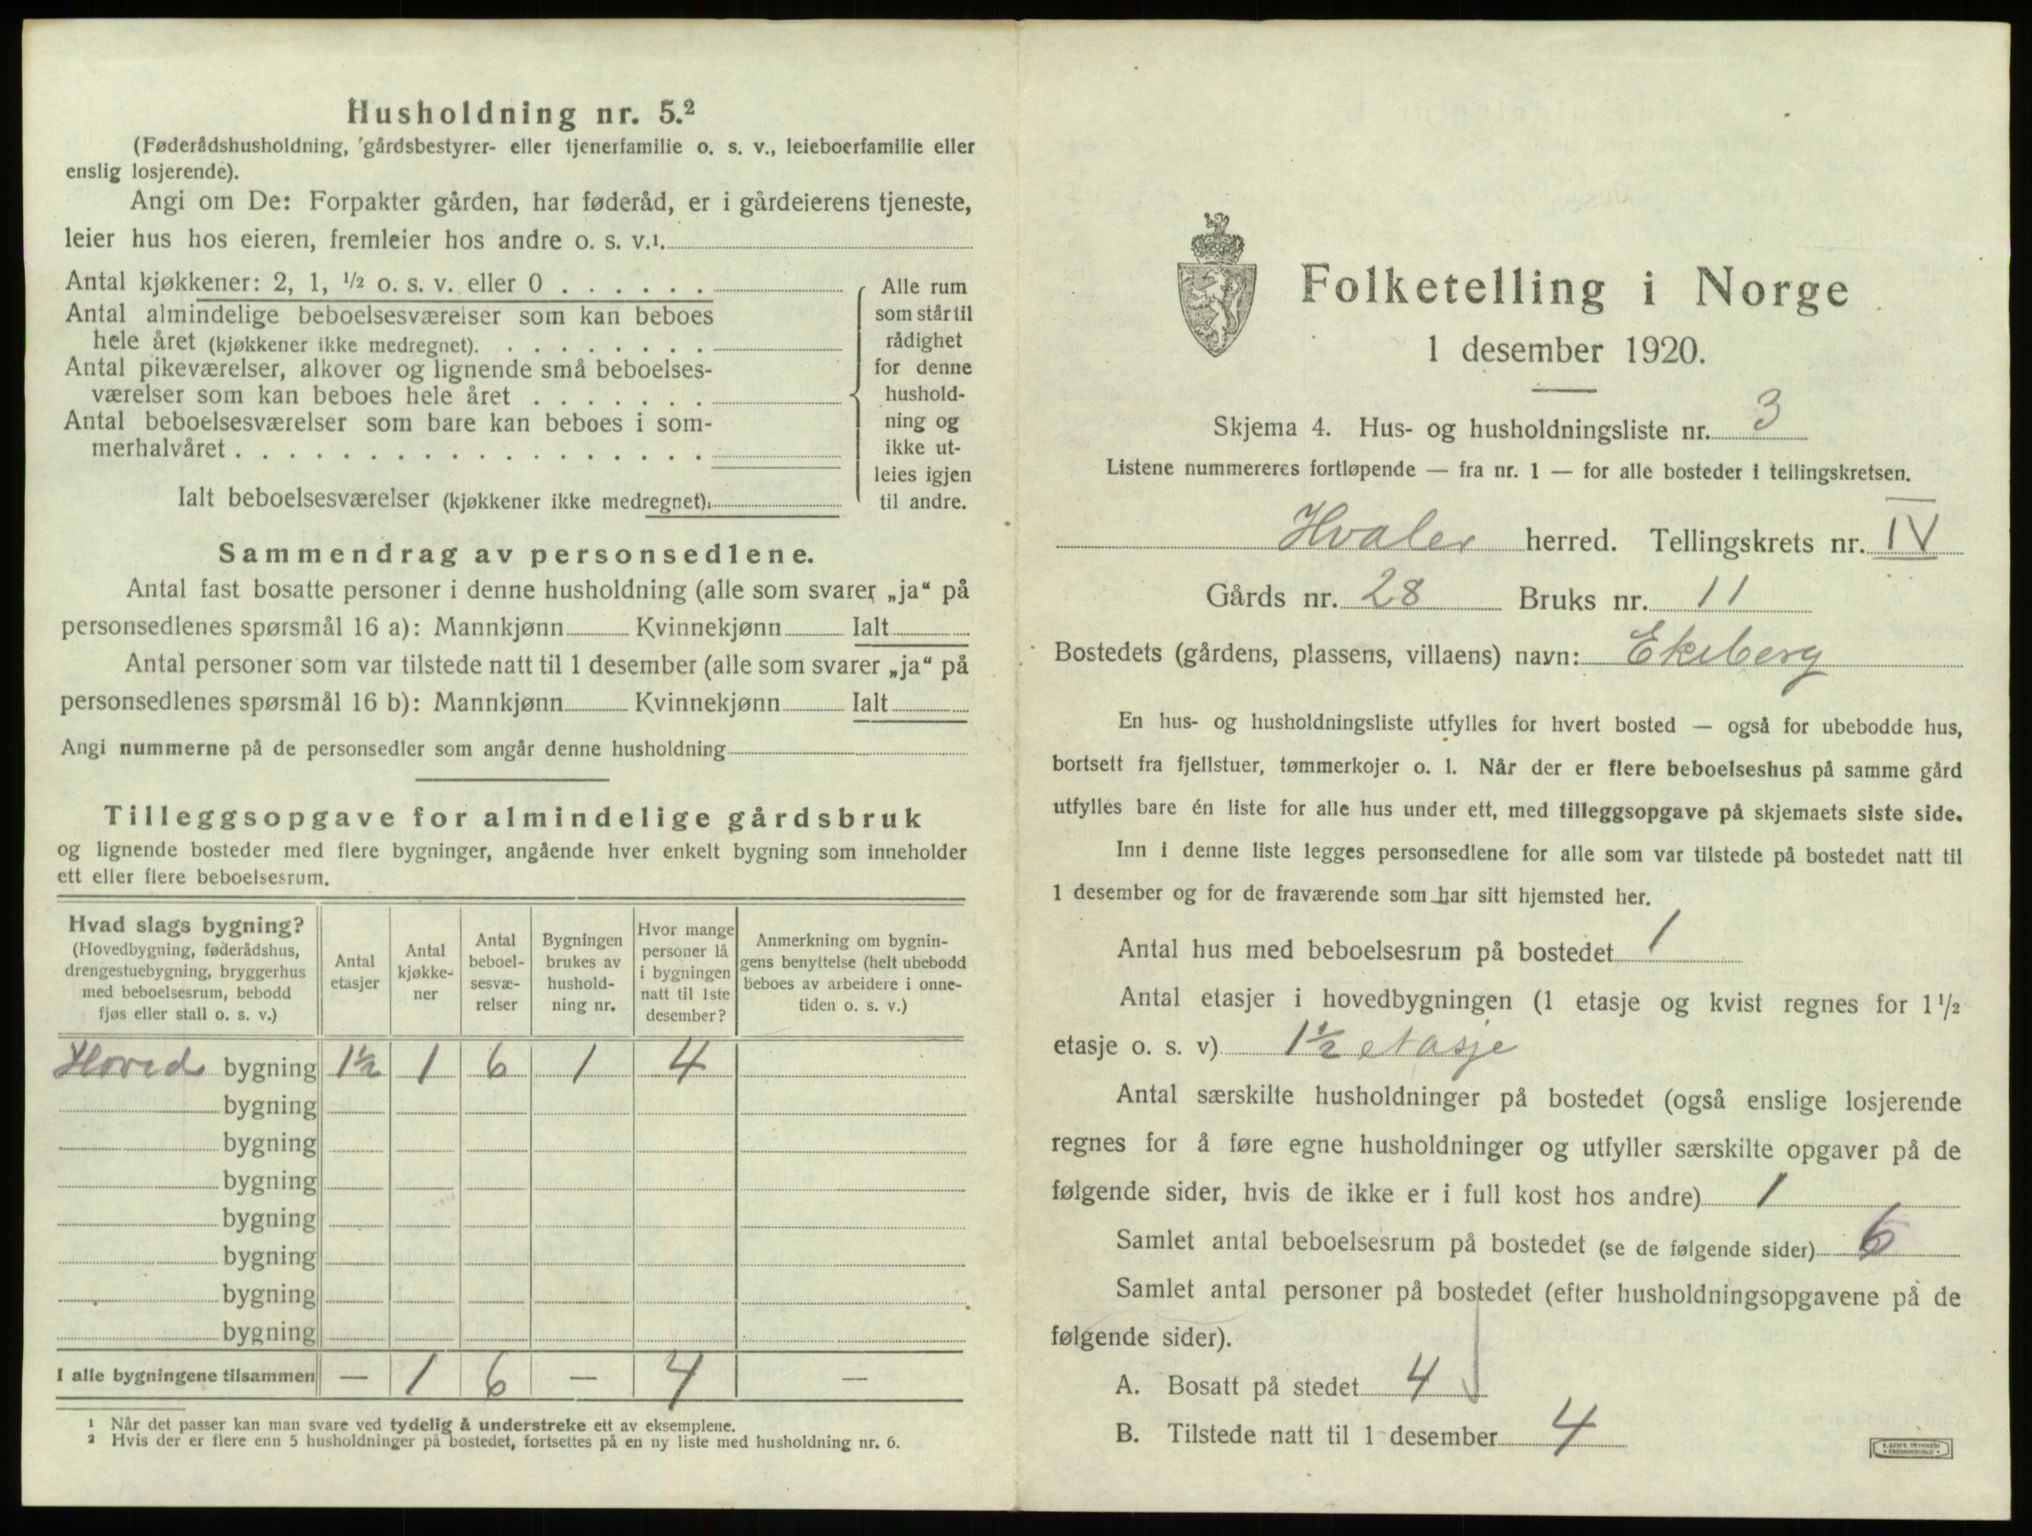 Husholdning nr. 5.²
(Føderådshusholdning, gårdsbestyrer- eller tjenerfamilie o. s. v., leieboerfamilie eller
enslig losjerende).
Angi om De: Forpakter gården, har føderåd, er i gårdeierens tjeneste,
leier hus hos eieren, fremleier hos andre o. s. v.¹
Antal kjøkkener: 2, 1, ½ o. s. v. eller 0 . . . . . .
Antal almindelige beboelsesværelser som kan beboes
hele året (kjøkkener ikke medregnet). . . . . . . . .
Antal pikeværelser, alkover og lignende små beboelses-
værelser som kan beboes hele året . . . . . . .
Antal beboelsesværelser som bare kan beboes i som-
merhalvåret . . . . . . . . . . . . . . . . . .
Ialt beboelsesværelser (kjøkkener ikke medregnet).
Alle rum
som står til
rådighet
for denne
hushold-
ning og
ikke ut-
leies igjen
til andre.
Sammendrag av personsedlene.
Antal fast bosatte personer i denne husholdning (alle som svarer „ja“ på
personsedlenes spørsmål 16 a): Mannkjønn Kvinnekjønn Ialt
Antal personer som var tilstede natt til 1 desember (alle som svarer „ja“ på
personsedlenes spørsmål 16 b): Mannkjønn Kvinnekjønn Ialt
Angi nummerne på de personsedler som angår denne husholdning
Tilleggsopgave for almindelige gårdsbruk
og lignende bosteder med flere bygninger, angående hver enkelt bygning som inneholder
ett eller flere beboelsesrum.
Hvad slags bygning?
(Hovedbygning, føderådshus,
drengestuebygning, bryggerhus
med beboelsesrum, bebodd
fjøs eller stall o. s. v.)
Antal
etasjer
Antal
kjøkke-
ner
Antal
beboel-
sesvæ-
relser
Bygningen
brukes av
hushold-
ning nr.
Hvor mange
personer lå
i bygningen
natt til 1ste
desember?
Anmerkning om bygnin-
gens benyttelse (helt ubebodd
beboes av arbeidere i onne-
tiden o. s. v.)
Hoved bygning 1½ 1 6 1 4
bygning
bygning
bygning
bygning
bygning
bygning
bygning
I alle bygningene tilsammen — 1 6 — 4 —
¹ Når det passer kan man svare ved tydelig å understreke ett av eksemplene.
² Hvis der er flere enn 5 husholdninger på bostedet, fortsettes på en ny liste med husholdning nr. 6.
Folketelling i Norge
1 desember 1920.
Skjema 4. Hus- og husholdningsliste nr. 3
Listene nummereres fortløpende — fra nr. 1 — for alle bosteder i tellingskretsen.
Hvaler herred. Tellingskrets nr. IV
Gårds nr. 28 Bruks nr. 11
Bostedets (gårdens, plassens, villaens) navn: Ekeberg
En hus- og husholdningsliste utfylles for hvert bosted — også for ubebodde hus,
bortsett fra fjellstuer, tømmerkojer o. l. Når der er flere beboelseshus på samme gård
utfylles bare én liste for alle hus under ett, med tilleggsopgave på skjemaets siste side.
Inn i denne liste legges personsedlene for alle som var tilstede på bostedet natt til
1 desember og for de fraværende som har sitt hjemsted her.
Antal hus med beboelsesrum på bostedet 1
Antal etasjer i hovedbygningen (1 etasje og kvist regnes for 1½
etasje o. s. v) 1½ etasje
Antal særskilte husholdninger på bostedet (også enslige losjerende
regnes for å føre egne husholdninger og utfyller særskilte opgaver på de
følgende sider, hvis de ikke er i full kost hos andre) 1
Samlet antal beboelsesrum på bostedet (se de følgende sider) 6
Samlet antal personer på bostedet (efter husholdningsopgavene på de
følgende sider).
A. Bosatt på stedet 4
B. Tilstede natt til 1 desember 4